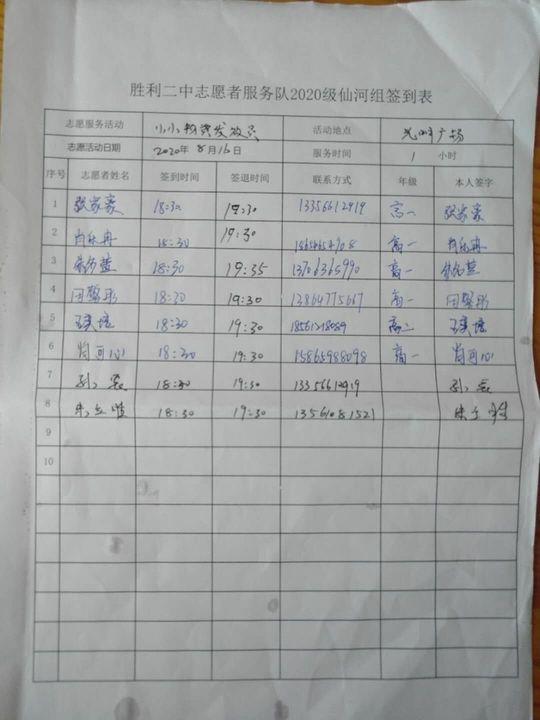 胜利二中志愿者服务队2020级仙河组签到表
志愿服务活动 小小物资发放员 活动地点 广场
志愿活动日期 2020年8月16日 服务时间 1 小时
序号 志愿者姓名 签到时间 签退时间 联系方式 年级 本人签字
1 张家豪 18:30 19:30 13356612919 高一 张家豪
2 18:30 19:30 高一
3 18:30 19:35 13706366990 高一
4 18:30 19:30 13864775667 高一
5 18:30 19:30 18561218089 高二
6 肖可心 18:30 19:30 15865988098 高一 肖可心
7 18:30 19:30 13356612919
8 18:30 19:30 13561081521
9
10